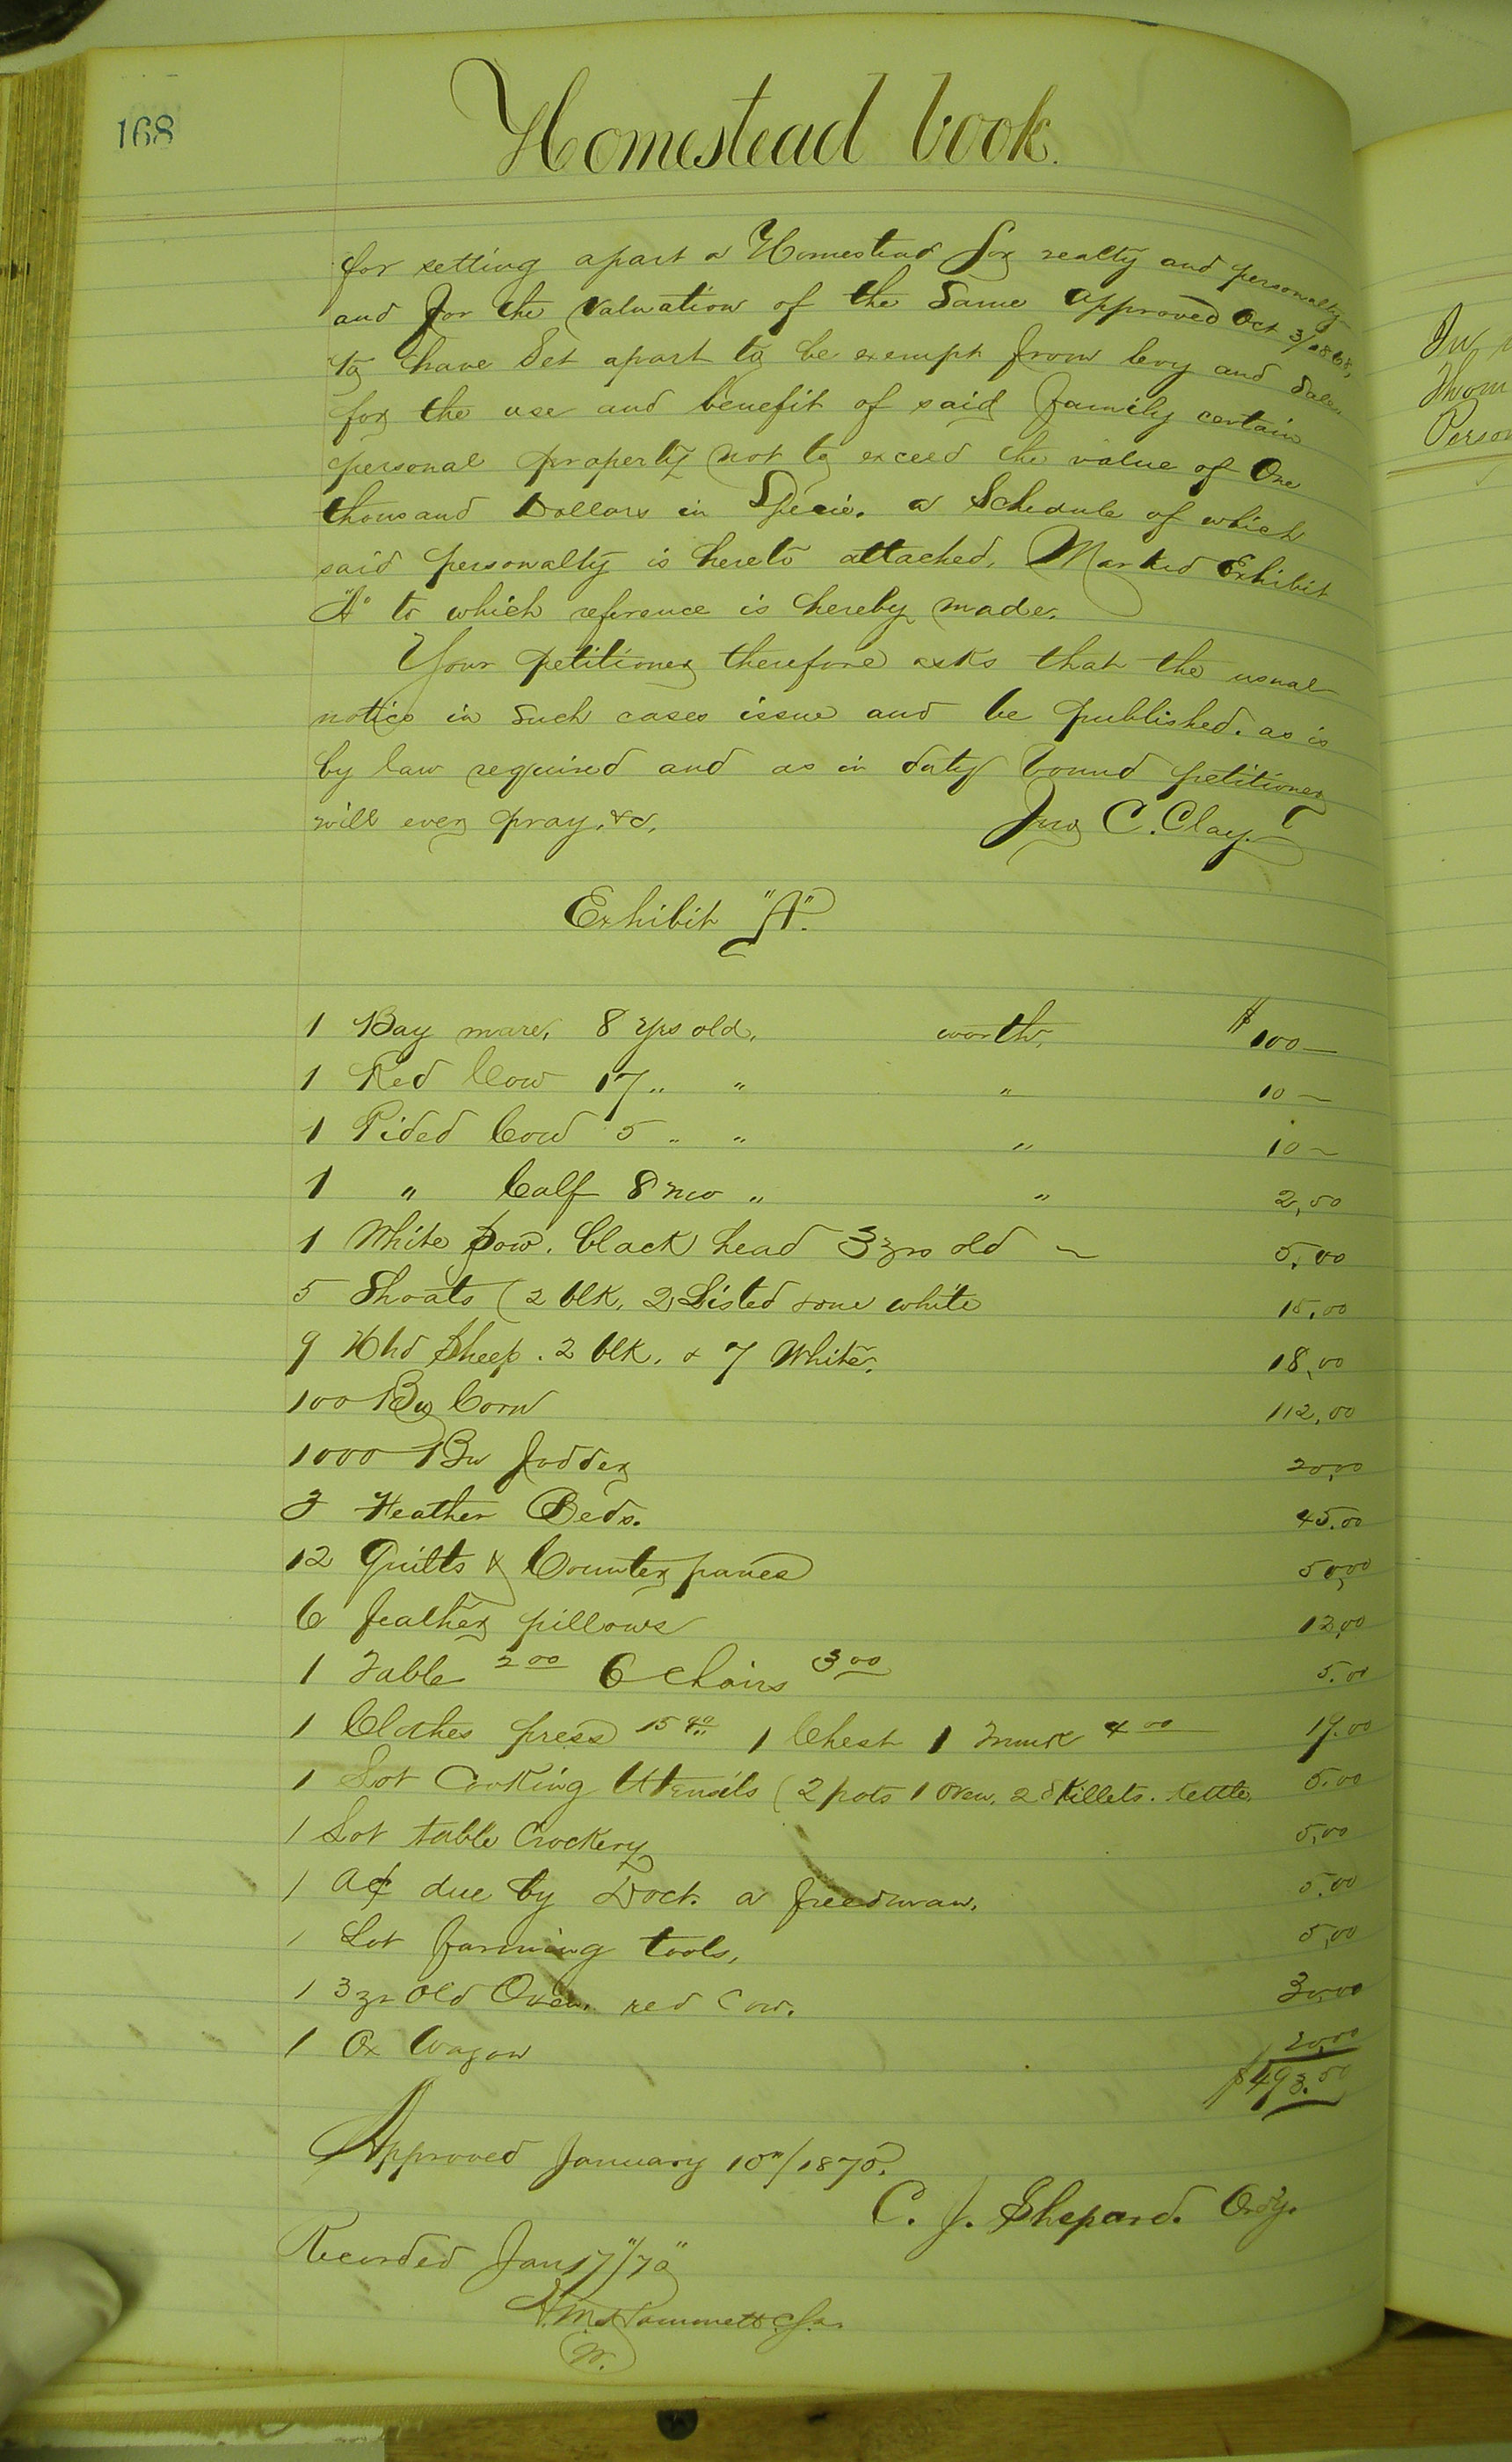 168
Homestead book.
for setting apart a Homestead for realty and personalty
and for the valuation of the Same approved Oct 3/1868,
to have Set apart to be exempt from levy and Sale,
for the use and benefit of said family certain
personal property not to exceed the value of One
thousand Dollars in Specie. a Schedule of which
said personalty is hereto attached, Marked Exhibit
"A" to which reference is hereby made.
Your petitioner therefore asks that the usual
notice in Such cases issue and be published. as is
by law required and as in duty bound petitioner
will ever pray, &c,
Jno C. Clay.
Exhibit "A".
1 Bay mare, 8 yrs old, worth, $100—
1 Red Cow 17 " " " 10—
1 Pided Cow 5 " " " 10—
1 " Calf 8 mo " " 2,50
1 White Sow. black head 3 yrs old 5.00
5 Shoats (2 blk, 2 Listed & one white 15.00
9 Hd Sheep. 2 blk. & 7 White. 18,00
100 Bu Corn 112,00
1000 Bu fodder 20,00
3 Feather Beds. 45.00
12 Quilts & Counter panes 50,00
6 feather pillows 12,00
1 Table 2 00 6 Chairs 3 00 5.00
1 Clothes press 15 00 1 Chest 1 Trunk 4 00 19.00
1 Lot Cooking Utensils (2 pots 1 Oven, 2 Skillets. kettle, 5.00
1 Lot table Crockery 5,00
1 a/c due by Doct. a freedman. 5.00
1 Lot farming tools, 5,00
1 3 yr old Oxen. red Cow. 30,00
1 Ox Wagon 20,00
$493.50
Approved January 10th/1870.
C. J. Shepard. Ordy.
Recorded Jan 17"/70"
In
Thom
Person